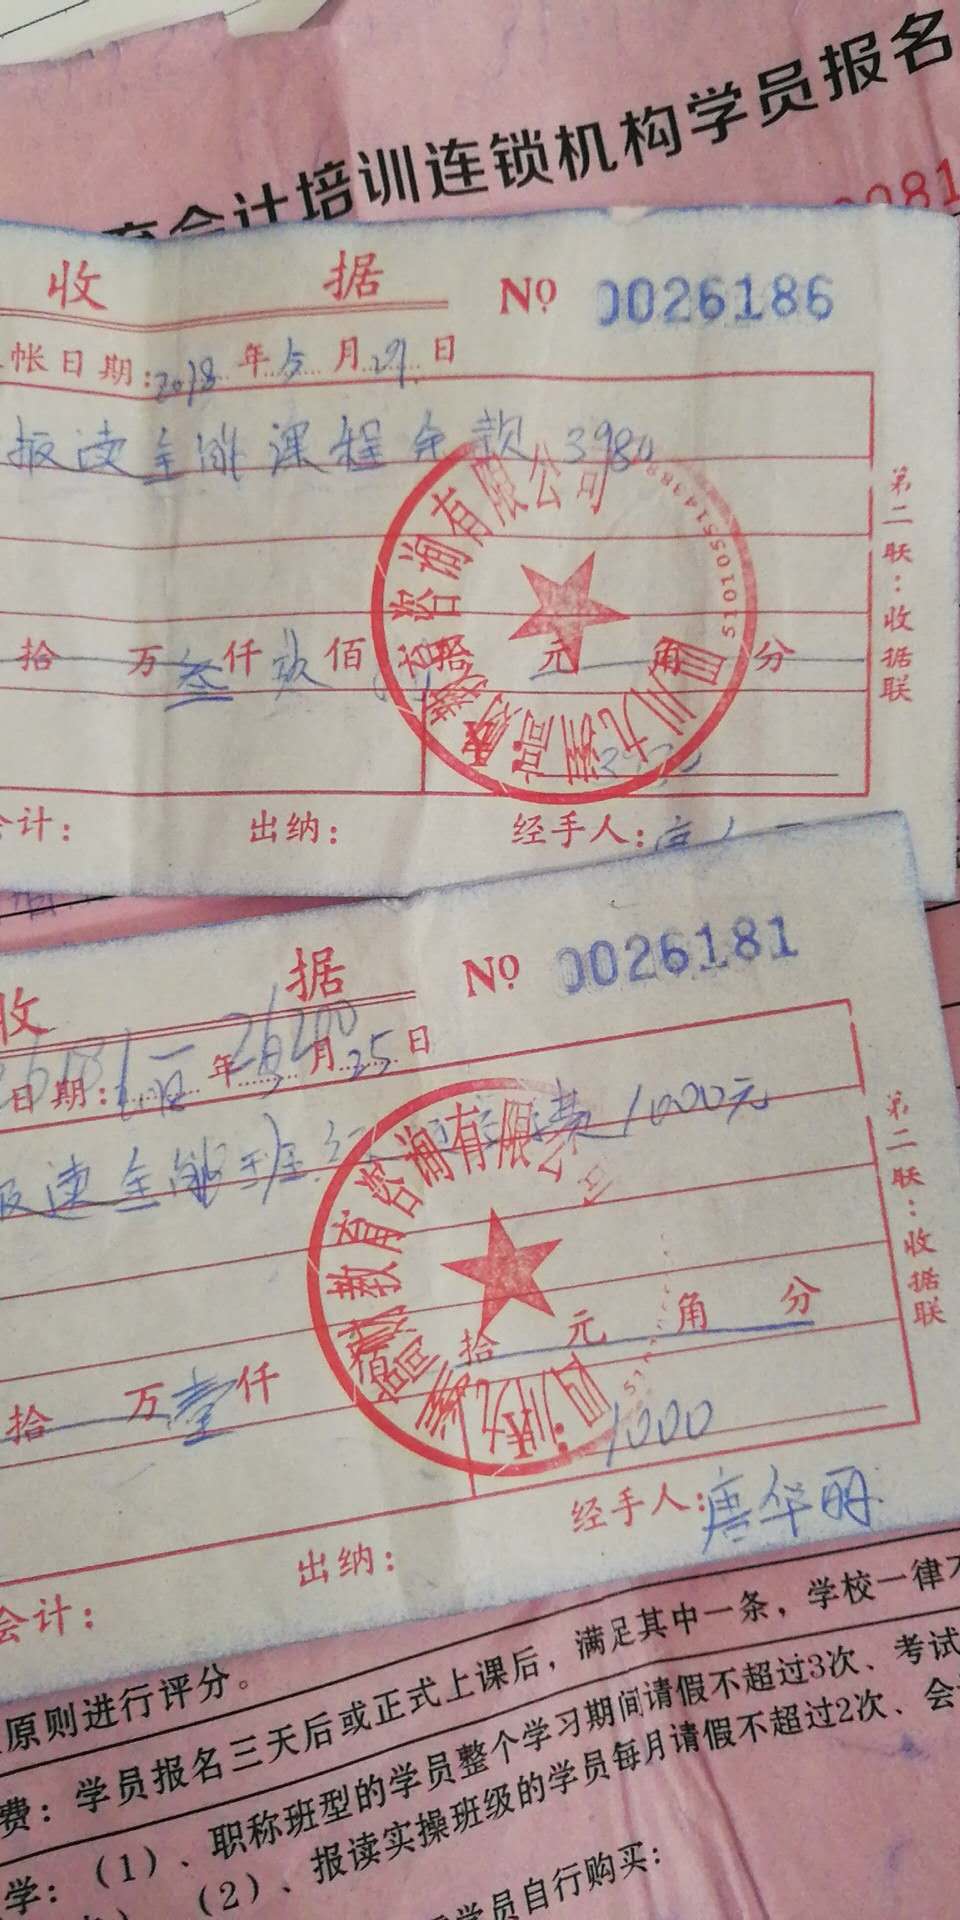 会计培训连锁机构学员报名
收 据 No 0026186
帐日期:2018年5月29日
报读全能课程余款3980
四川九洲高教育咨询有限公司
5101055143
拾 万叁仟玖佰 拾 元 角 分
第二联:收据联
计: 出纳: 经手人:唐
收 据 No 0026181
26181-26200
日期: 年5月25日
报读全能班 费1000元
教育咨询有限公司
拾 万壹仟 拾 元 角 分
1000
第二联:收据联
会计: 出纳: 经手人:唐华丽
原则进行评分。
费:学员报名三天后或正式上课后,满足其中一条,学校一律不
学:(1)、职称班型的学员整个学习期间请假不超过3次、考试
(2)、报读实操班级的学员每月请假不超过2次、会
学员自行购买: